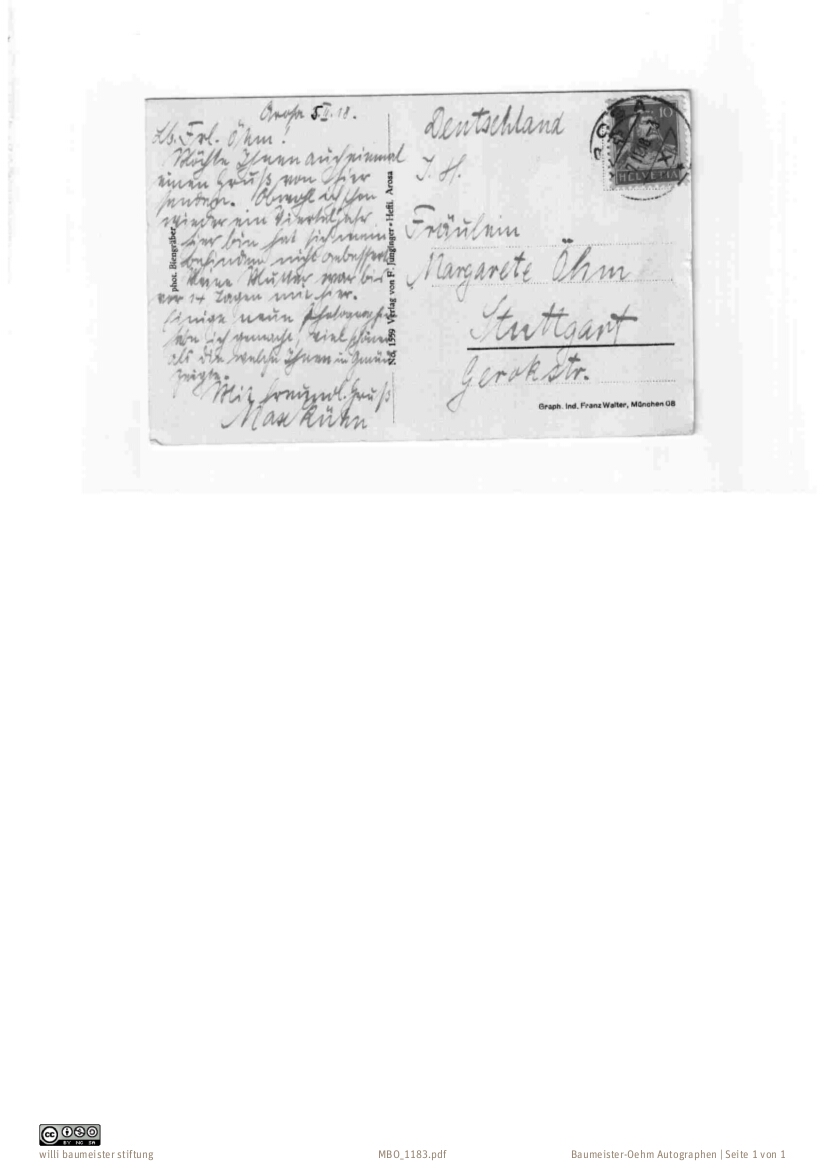 Arosa 5.II.18.
Lb. Frl. Öhm!
Möchte Ihnen auch einmal
einen Gruß von hier
senden. Obwohl ich schon
wieder ein Vierteljahr
hier bin hat sich mein
Befinden nicht gebessert.
Meine Mutter war bis
vor 14 Tagen mit hier.
Einige neue
habe ich gemacht, viel
als die welche Ihnen in Gmünd
zeigte.
Mit freundl. Gruß
Max Kühn
phot. Biengräber
No. 1559 Verlag von F. Junginger-Heffi. Arosa
Deutschland
Fräulein
Margarete Öhm
Stuttgart
Gerokstr.
Graph. Ind. Franz Walter, München
AROSA
10
HELVETIA
cc BY NC SA
willi baumeister stiftung
MBO_1183.pdf
Baumeister-Oehm Autographen | Seite 1 von 1